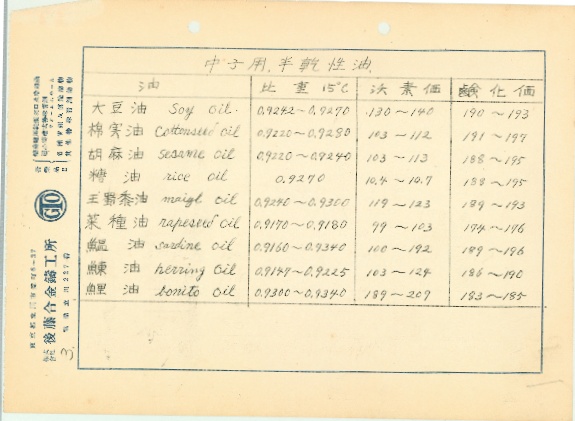 中子用, 半乾性油
油 比重 15°C 沃素価 鹼化価
大豆油 Soy oil. 0.9242~0.9270 130~140 190~193
棉実油 Cottonseed oil 0.9220~0.9280 103~112 191~197
胡麻油 sesame oil 0.9220~0.9240 103~113 188~195
糖油 rice oil 0.9270 10.4~10.7 188~195
王蜀黍油 maigl oil 0.9240~0.9300 119~123 189~193
菜種油 rapeseed oil 0.9170~0.9180 99~103 174~176
油 sardine oil 0.9160~0.9340 100~192 189~196
鰊油 herring oil 0.9147~0.9225 103~124 186~190
油 bonito oil 0.9300~0.9340 189~207 183~185
GTO
後藤合金鑄工所
3.